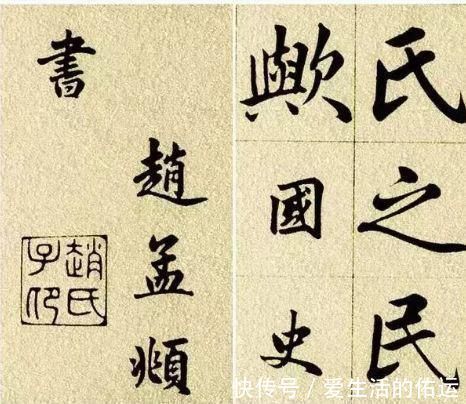 氏之民
歟國史
趙孟頫
書
趙氏
子昂
快传号 / 爱生活的佑运